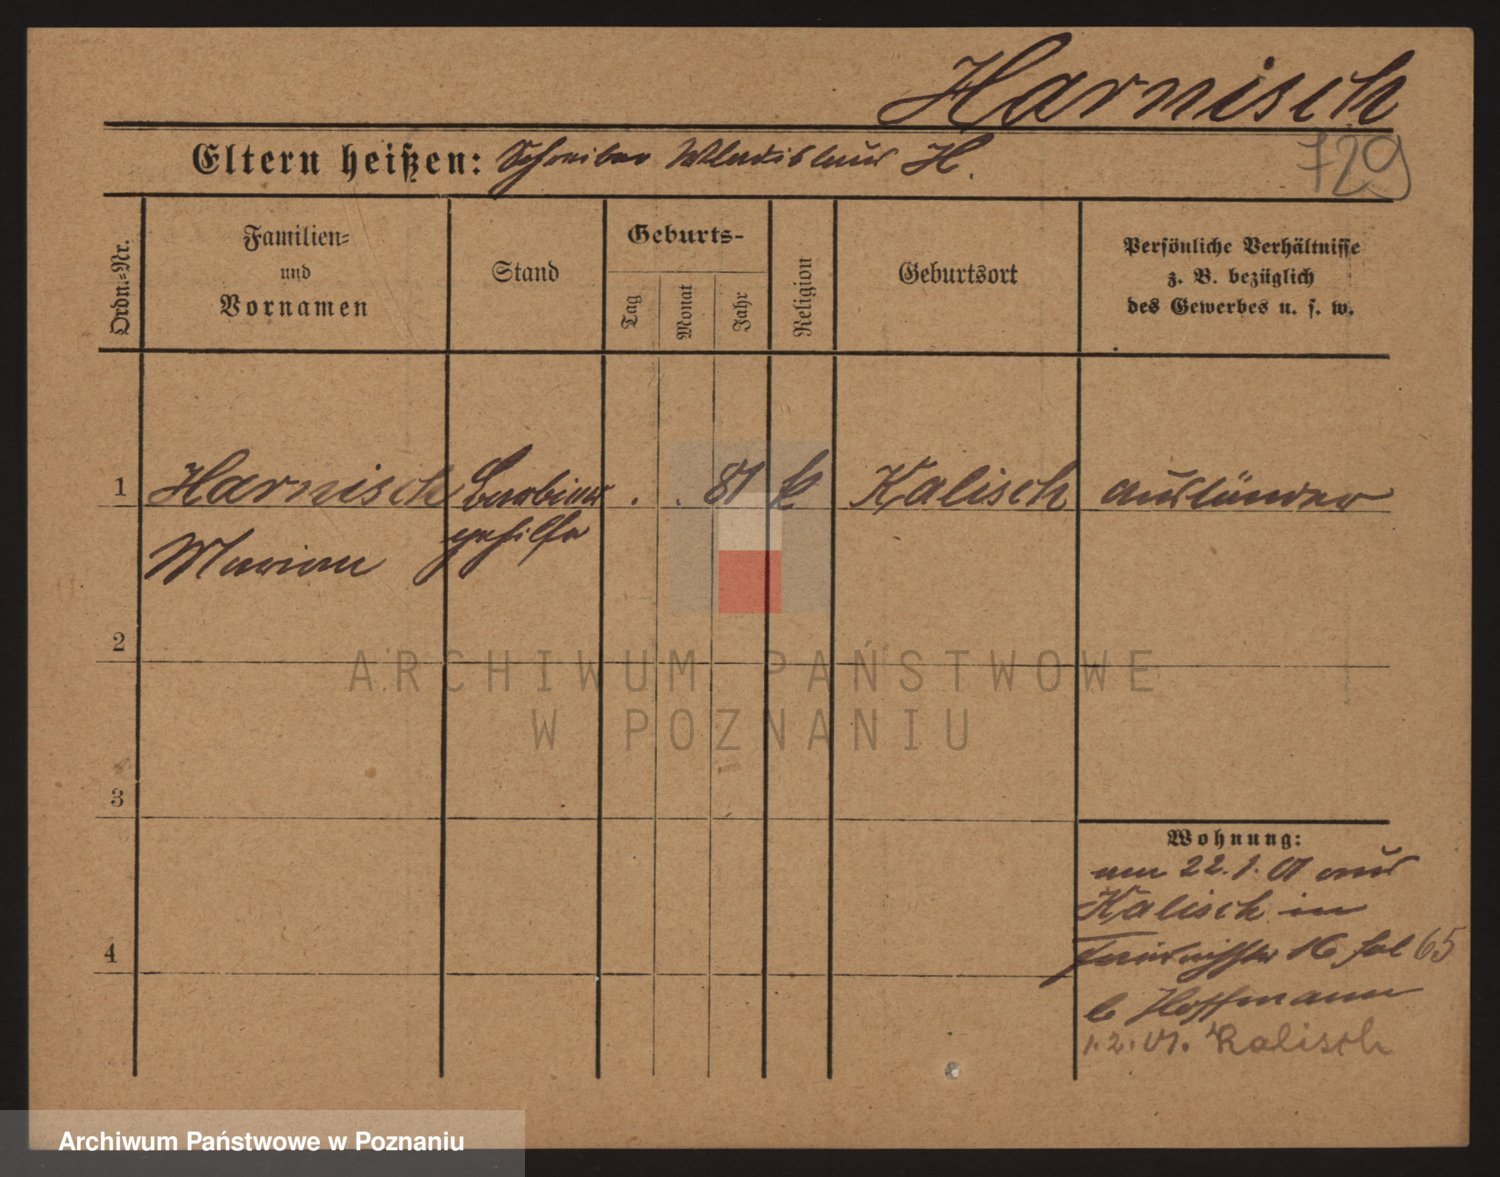 Harnisch
729
Eltern heißen: Schreiber Wladislaus H.
Ordn.-Nr.
Familien-
und
Vornamen
Stand
Geburts-
Tag
Monat
Jahr
Religion
Geburtsort
Persönliche Verhältnisse
z. B. bezüglich
des Gewerbes u. s. w.
1 Harnisch Barbier . . 81 k Kalisch Ausländer
gehilfe
Marian
2
3
4
Wohnung:
am 22.1.01 aus
Kalisch in
16 65
b Hoffmann
1.2.01. Kalisch
ARCHIWUM PAŃSTWOWE
W POZNANIU
Archiwum Państwowe w Poznaniu